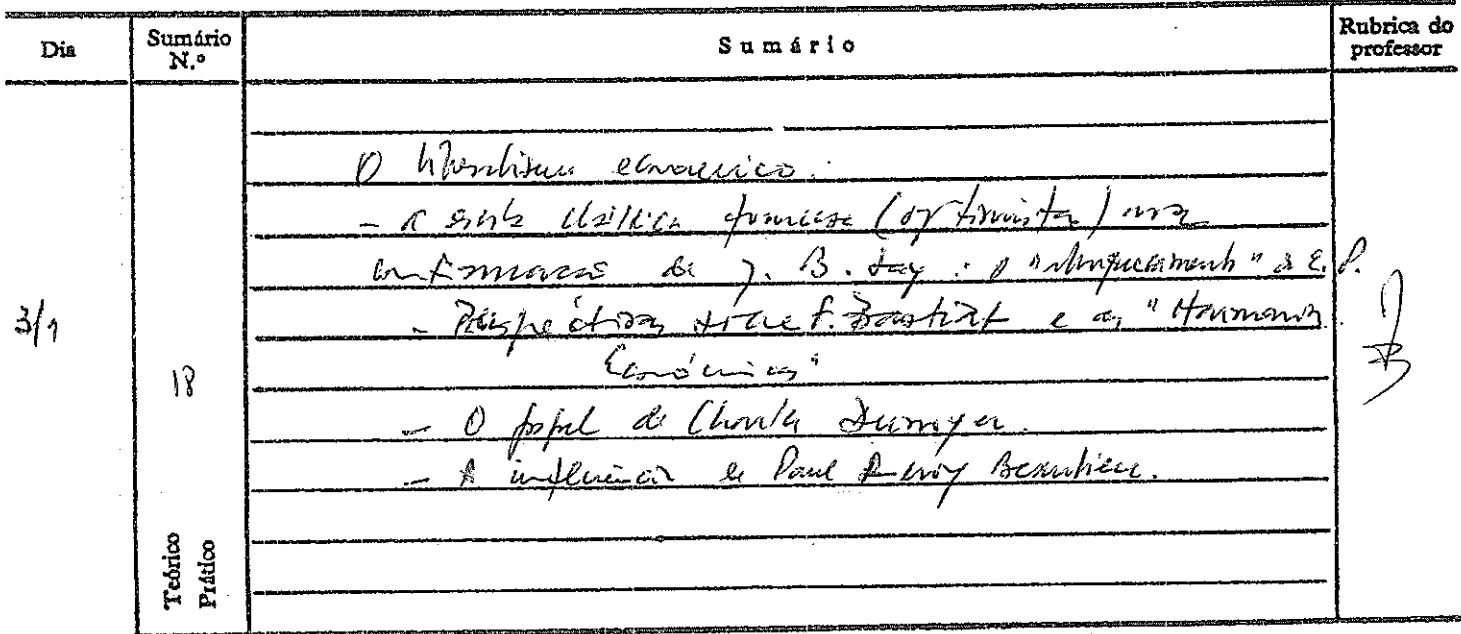 Dia
Sumário N.º
Sumário
Rubrica do professor
3/1
18
Teórico
Prático
O liberalismo económico:
- A escola clássica francesa (optimista) uma
de J. B. Say: o "alargamento" da E. P.
- Perspectivas sobre F. Bastiat e as "Harmonias
Económicas"
- O papel de Charles Dunoyer.
- A influência de Paul Leroy Beaulieu.